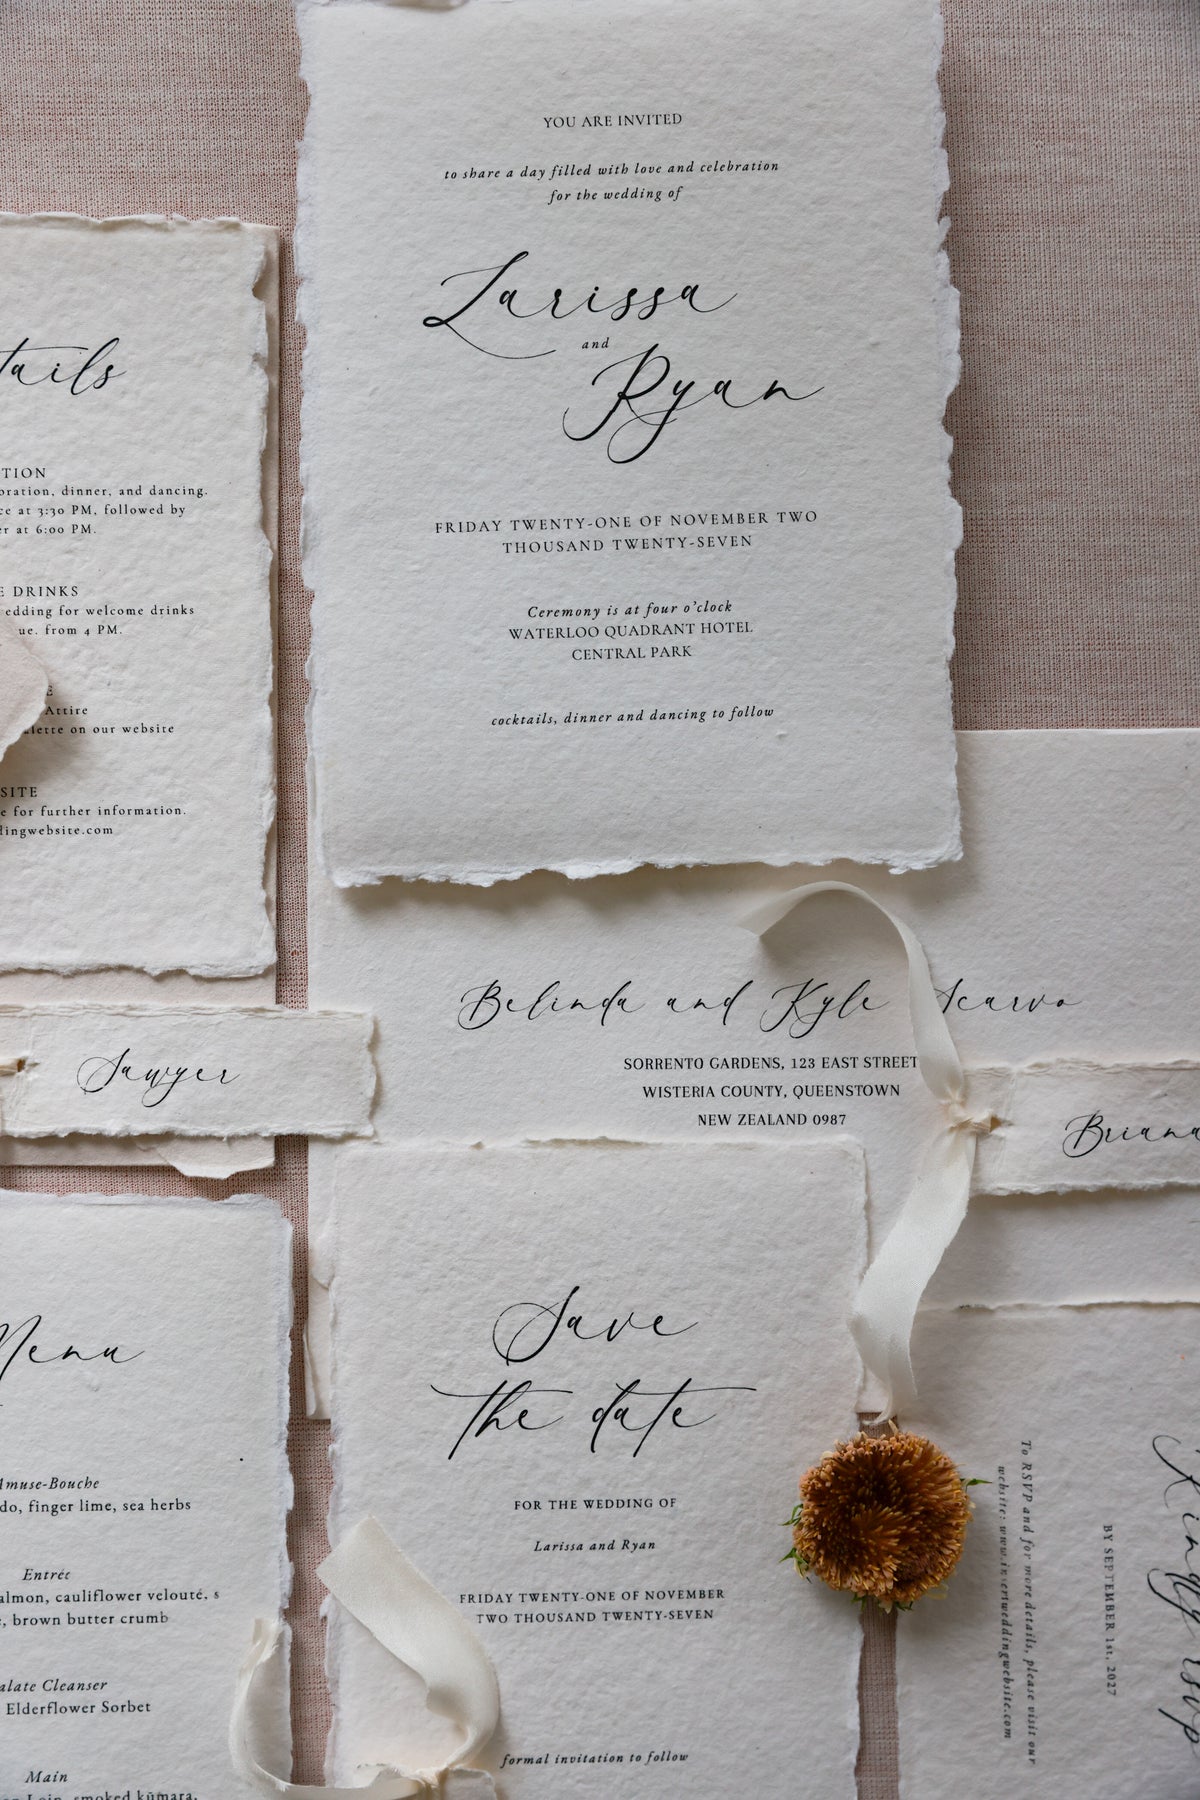 YOU ARE INVITED
to share a day filled with love and celebration
for the wedding of
Larissa
and
Ryan
FRIDAY TWENTY-ONE OF NOVEMBER TWO
THOUSAND TWENTY-SEVEN
Ceremony is at four o'clock
WATERLOO QUADRANT HOTEL
CENTRAL PARK
cocktails, dinner and dancing to follow
tails
TION
oration, dinner, and dancing.
ce at 3:30 PM, followed by
er at 6:00 PM.
E DRINKS
edding for welcome drinks
ue. from 4 PM.
E
Attire
alette on our website
SITE
e for further information.
dingwebsite.com
Belinda and Kyle Scarvo
SORRENTO GARDENS, 123 EAST STREET
WISTERIA COUNTY, QUEENSTOWN
NEW ZEALAND 0987
Sawyer
Briana
Menu
Amuse-Bouche
do, finger lime, sea herbs
Entrée
almon, cauliflower velouté, s
e, brown butter crumb
alate Cleanser
Elderflower Sorbet
Main
Loin, smoked kūmara,
Save
the date
FOR THE WEDDING OF
Larissa and Ryan
FRIDAY TWENTY-ONE OF NOVEMBER
TWO THOUSAND TWENTY-SEVEN
formal invitation to follow
Kindly rsvp
BY SEPTEMBER 1st, 2027
To RSVP and for more details, please visit our
website: www.insertweddingwebsite.com